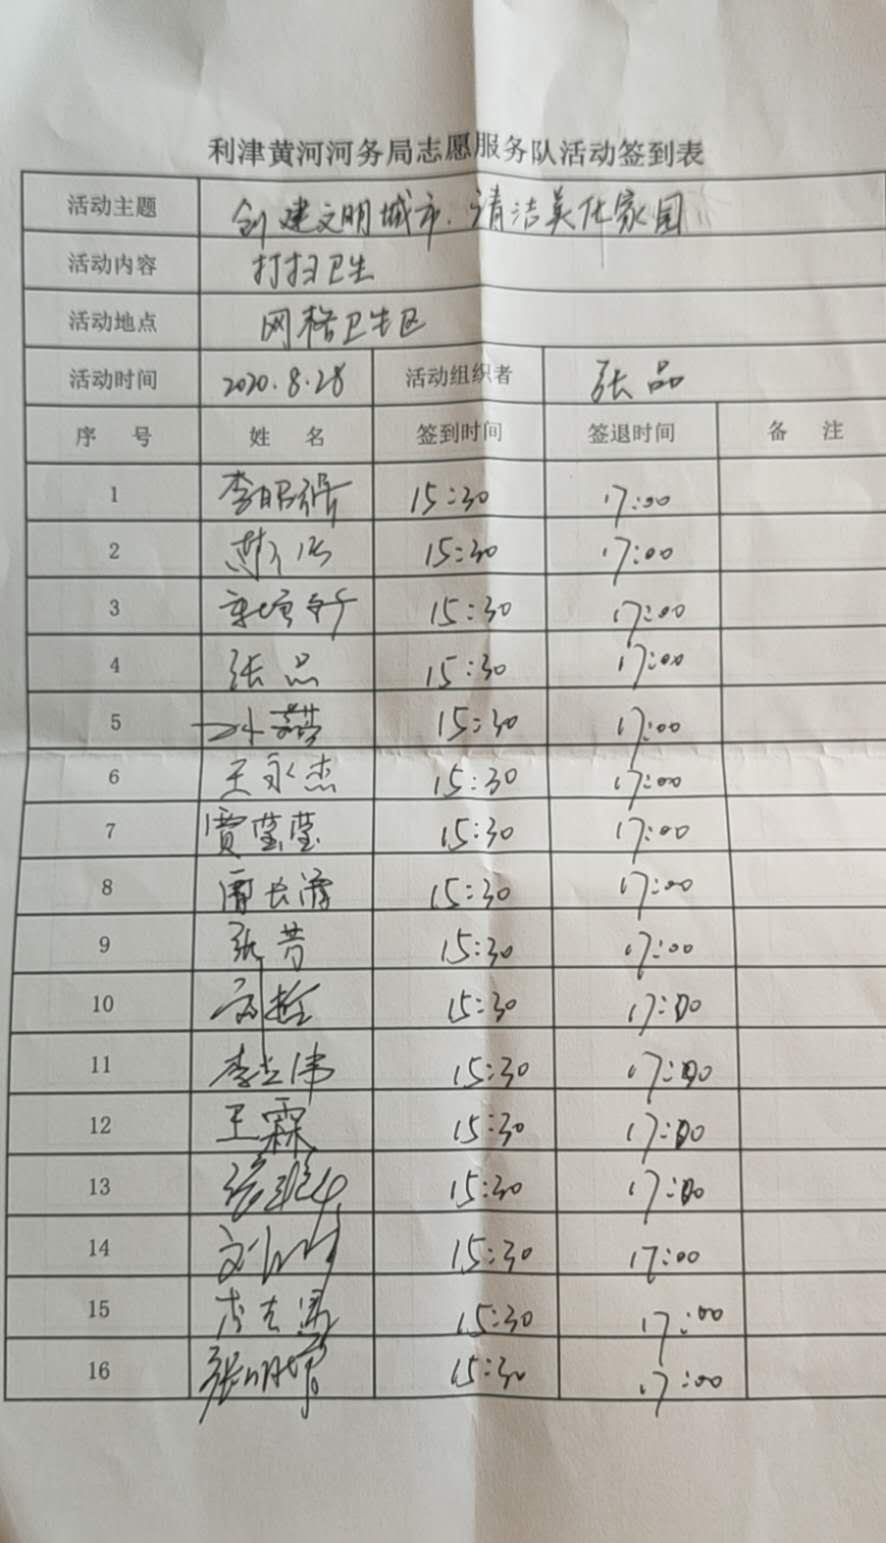 利津黄河河务局志愿服务队活动签到表
活动主题 创建文明城市.清洁美化家园
活动内容 打扫卫生
活动地点 网格卫生区
活动时间 2020.8.28 活动组织者 张品
序号 姓名 签到时间 签退时间 备注
1 15:30 17:00
2 15:30 17:00
3 15:30 17:00
4 张品 15:30 17:00
5 15:30 17:00
6 王永杰 15:30 17:00
7 贾莹莹 15:30 17:00
8 15:30 17:00
9 张芳 15:30 17:00
10 15:30 17:00
11 李立伟 15:30 17:00
12 王霖 15:30 17:00
13 15:30 17:00
14 15:30 17:00
15 15:30 17:00
16 15:30 17:00